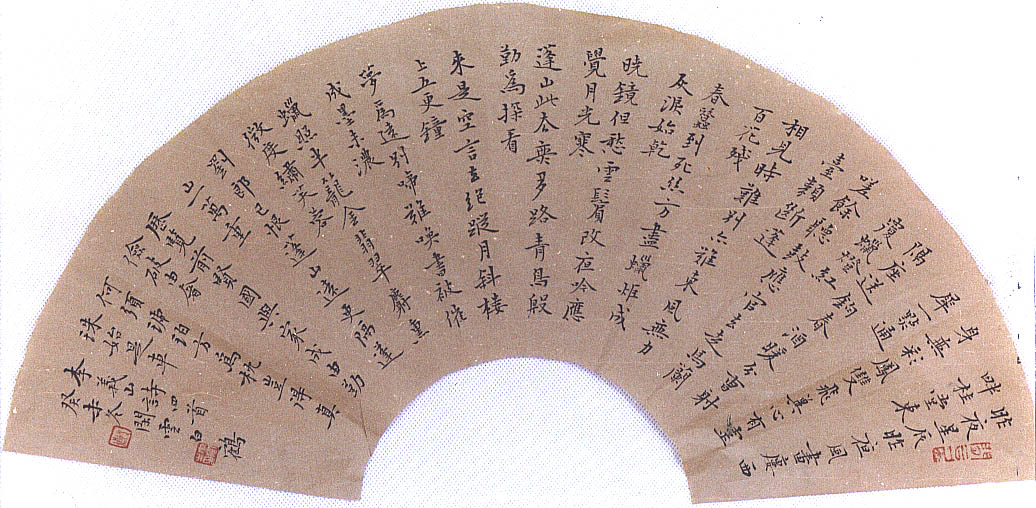 昨夜星辰昨夜風畫廔西
畔桂堂東
身無彩鳳雙飛翼心有靈
犀一點通
隔座送鉤春酒暖分曹射
覆蠟燈紅
嗟餘聽鼓應官去走馬蘭
臺類斷蓬
相見時難別亦難東風無力
百花殘
春蠶到死絲方盡蠟炬成
灰淚始乾
曉鏡但愁雲鬢改夜吟應
覺月光寒
蓬山此去無多路青鳥殷
勤為探看
來是空言去絕蹤月斜樓
上五更鐘
夢為遠別啼難喚書被催
成墨未濃
蠟照半籠金翡翠麝熏
微度繡芙蓉
劉郎已恨蓬山遠更隔蓬
山萬重
歷覽前賢國與家成由勤
儉破由奢
何須琥珀方為枕豈得真
珠始是車
李義山詩四首
癸未冬閒雲白鶴